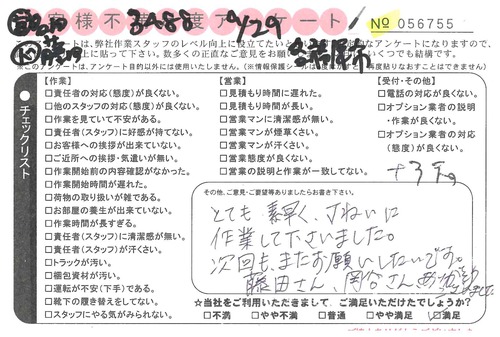 お客様不満度アンケート
3A88
9/29
№ 056755
このアンケートは、弊社作業スタッフのレベル向上に役立てたいと
数多くの正直なご意見をお
いくつでも結構です。
【作業】
□責任者の対応(態度)が良くない。
□他のスタッフの対応(態度)が良くない。
□作業を見ていて不安がある。
□責任者(スタッフ)に好感が持てない。
□お客様への挨拶が出来ていない。
□ご近所への挨拶・気遣いが無い。
□作業開始前の内容確認がなかった。
□作業開始時間が遅れた。
□荷物の取り扱いが雑である。
□お部屋の養生が出来ていない。
□作業時間が長すぎる。
□責任者(スタッフ)に清潔感が無い。
□責任者(スタッフ)が汗くさい。
□トラックが汚い。
□梱包資材が汚い。
□運転が不安(下手)である。
□靴下の履き替えをしてない。
□スタッフにやる気がみられない。
【営業】
□見積もり時間に遅れた。
□見積もり時間が長い。
□営業マンに清潔感が無い。
□営業マンが煙草くさい。
□営業マンが汗くさい。
□営業態度が良くない。
□営業の説明と作業が一致してない。
【受付・その他】
□電話の対応が良くない。
□オプション業者の説明
・作業が良くない。
□オプション業者の対応
(態度)が良くない。
チェックリスト
その他、ご意見・ご要望等ありましたらお書き下さい。
とても素早く、きれいに
作業して下さいました。
次回も、またお願いしたいです。
藤田さん、岡谷さん
☆当社をご利用いただきまして、ご満足いただけたでしょうか?
□不満 □やや不満 □普通 □やや満足 □満足